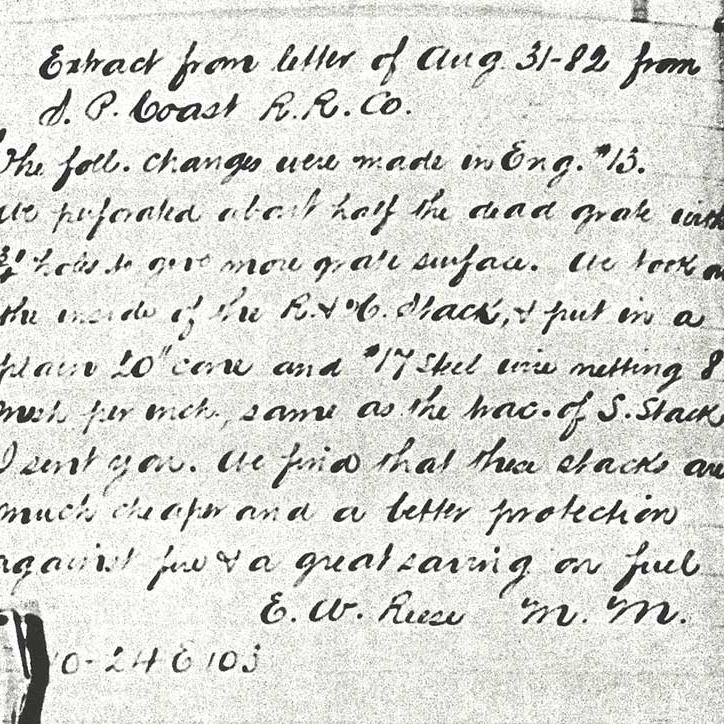 Extract from letter of Aug. 31-82 from
S. P. Coast R.R. Co.
The foll. changes were made in Eng. #13.
We perforated about half the dead grate with
3/4" holes to give more grate surface. We took
the inside of the R. & Stack, & put in a
plain 20" cone and #17 Steel wire netting 8
mesh per inch, same as the trac. of S. Stack
I sent you. We find that these stacks are
much cheaper and a better protection
against fire & a great saving on fuel
E. W. Reese M. M.
10-24 E 103